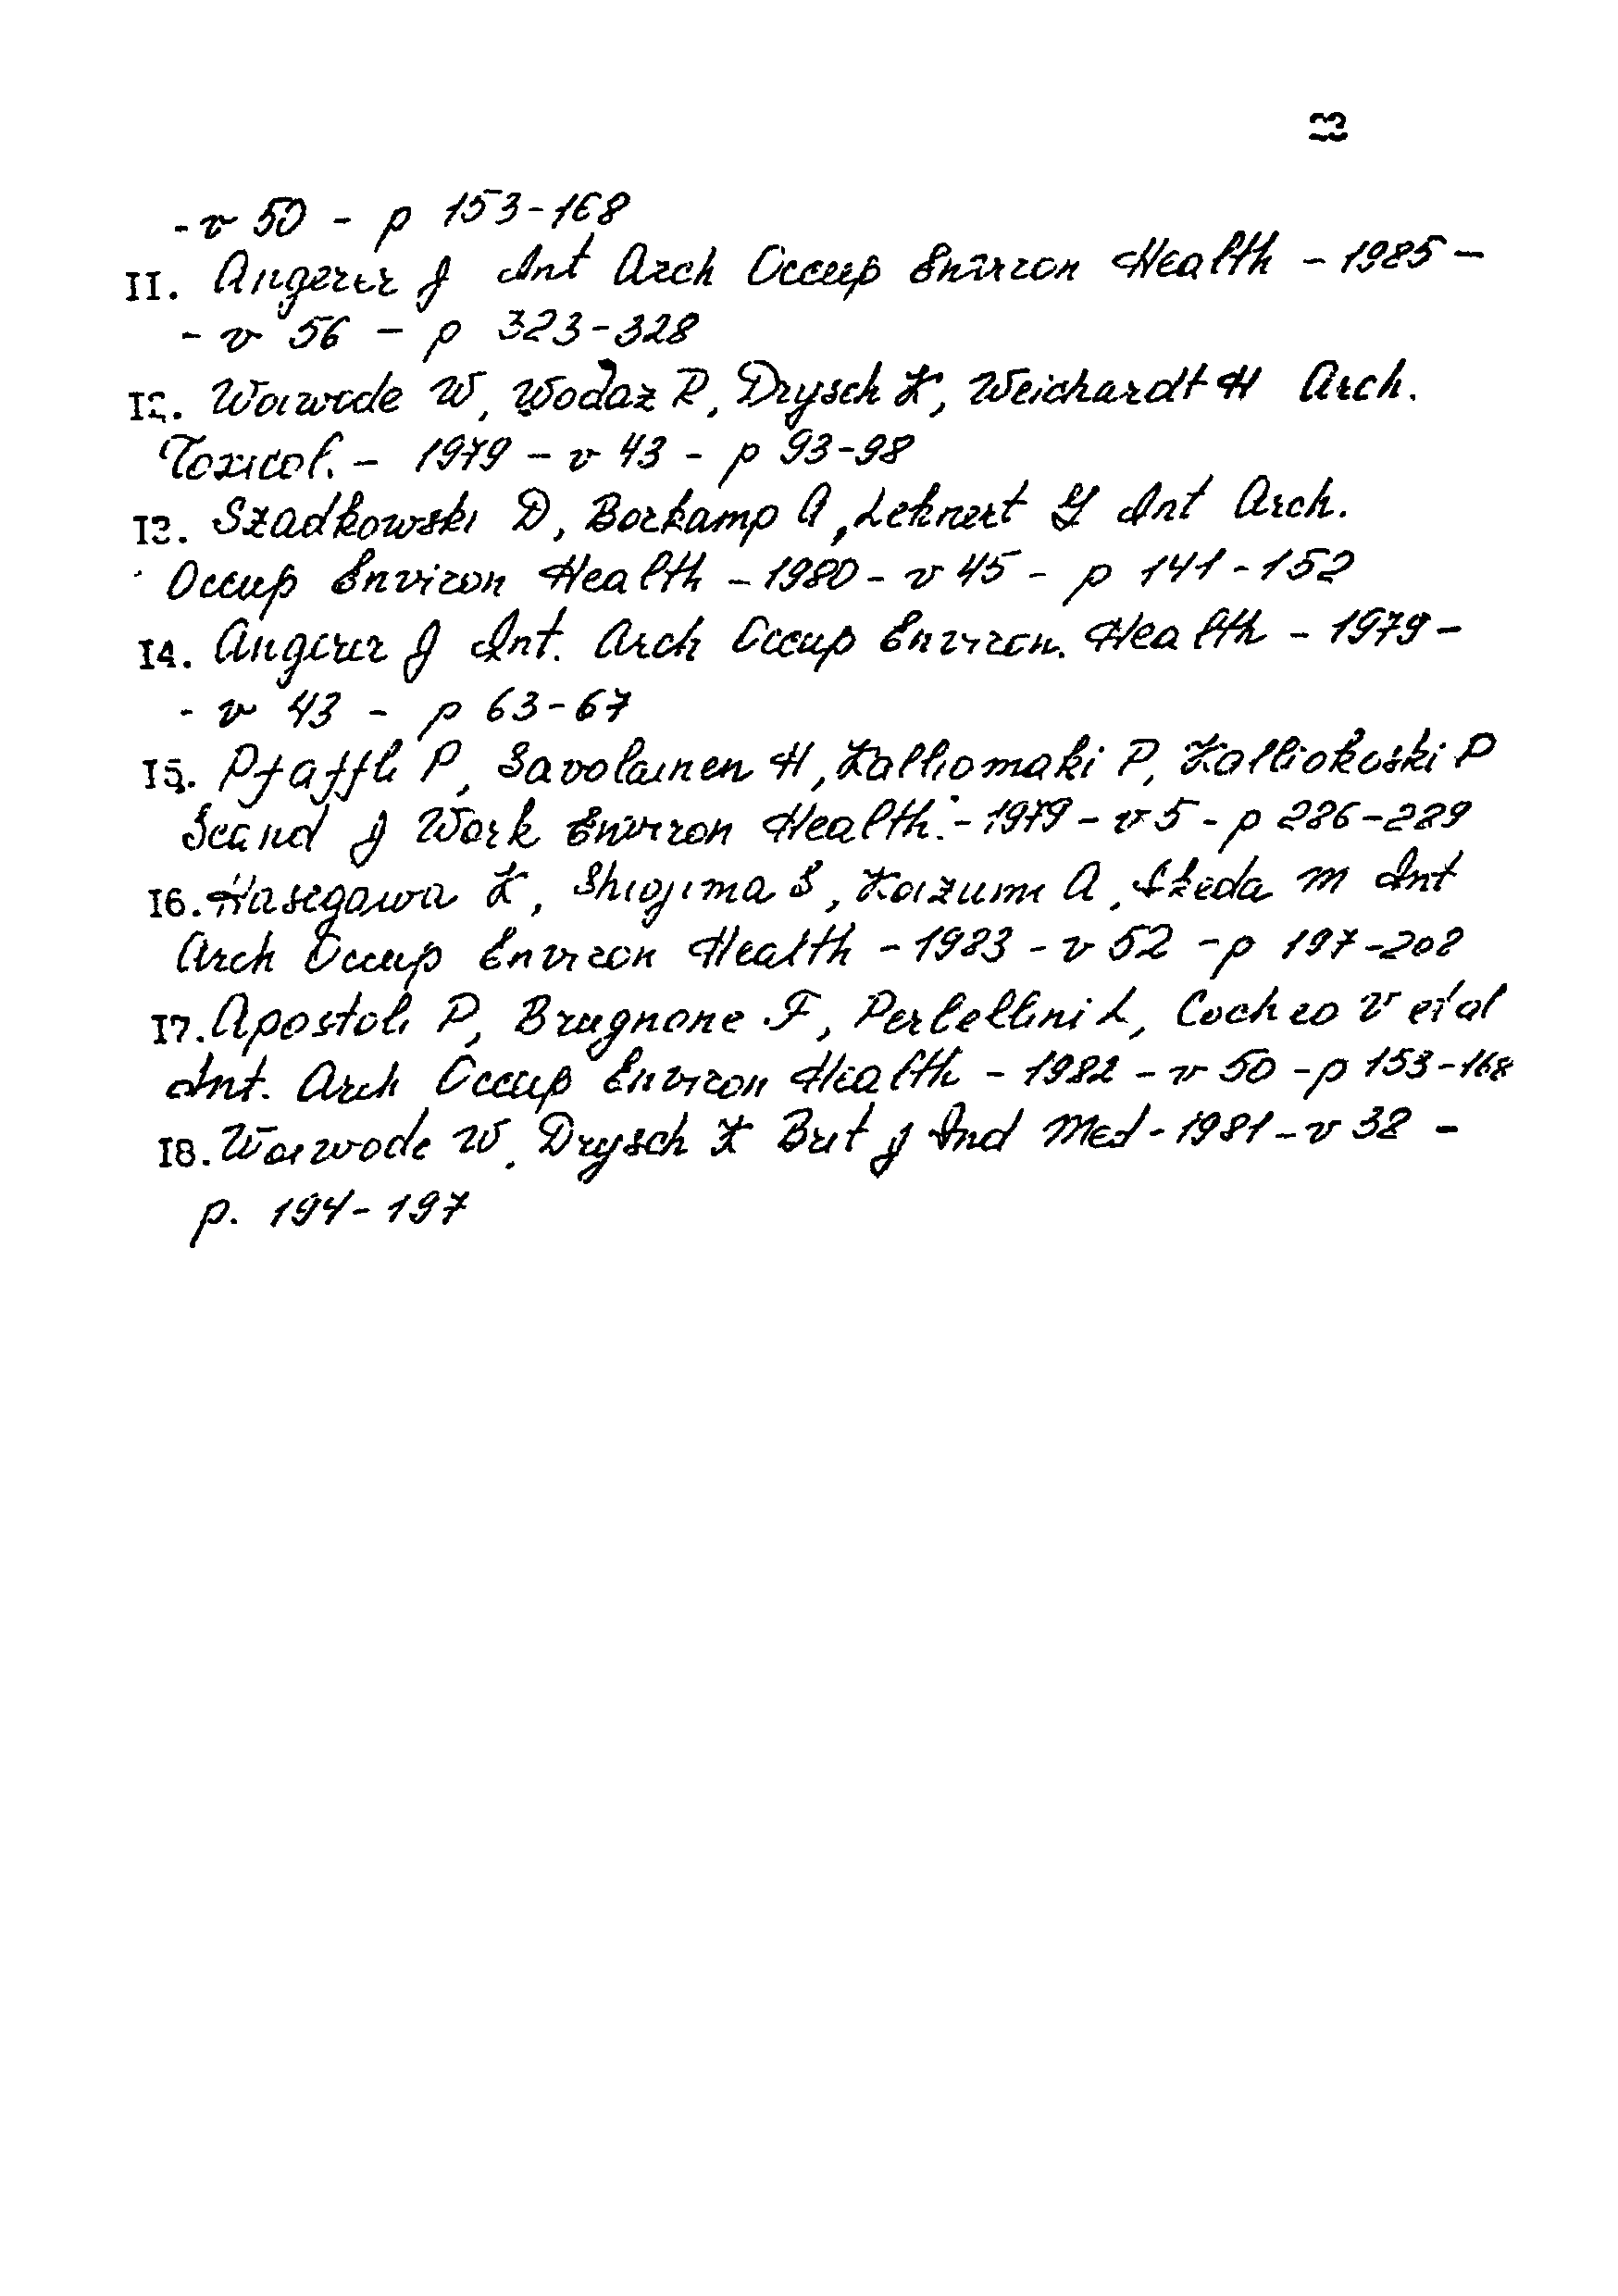 13
- v 50 - p 153-168
II. Angerer J Int Arch Occup Environ Health - 1985 -
- v 56 - p 323-328
I2. Woiwode W, Wodaz R, Drysch K, Weichardt H Arch.
Toxicol. - 1979 - v 43 - p 93-98
I3. Szadkowski D, Borkamp A, Lehnert G Int Arch.
Occup Environ Health - 1980 - v 45 - p 141-152
I4. Angerer J Int. Arch Occup Environ. Health - 1979 -
- v 43 - p 63-67
I5. Pfaffli P, Savolainen H, Kalliomaki P, Kalliokoski P
Scand J Work Environ Health. - 1979 - v 5 - p 286-289
I6. Hasegawa K, Shiojima S, Koizumi A, Ikeda M Int
Arch Occup Environ Health - 1983 - v 52 - p 197-208
I7. Apostoli P, Brugnone F, Perbellini L, Cocheo V et al
Int. Arch Occup Environ Health - 1982 - v 50 - p 153-168
I8. Woiwode W. Drysch K Brit J Ind Med - 1981 - v 38 -
p. 194-197